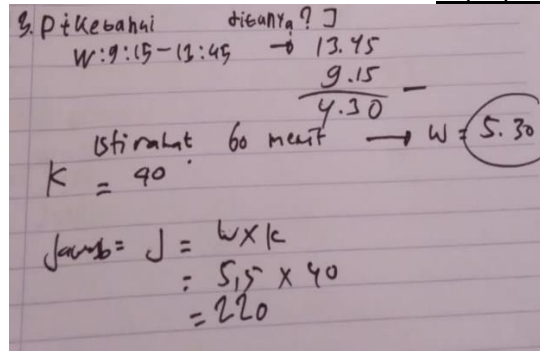 3. Diketahui ditanya? J
W: 9:15 - 13:45 → 13.45
9.15 -
4.30
istirahat 60 menit → W = 5.30
K = 40
Jawab = J = W x k
= 5,5 x 40
= 220